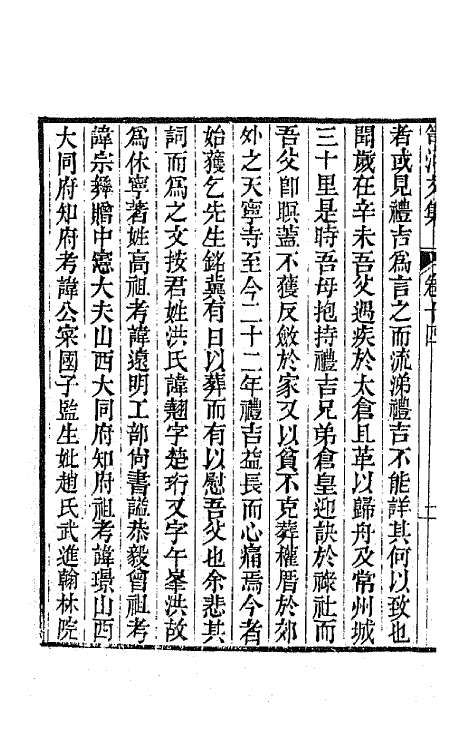 笥河文集　卷十四　二
者或見禮吉爲言之而流涕禮吉不能詳其何以致也
聞歲在辛未吾父遇疾於太倉且革以歸舟及常州城
三十里是時吾母抱持禮吉兄弟倉皇迎訣於祿社而
吾父卽瞑蓋不獲反斂於家又以貧不克葬權厝於郊
外之天寧寺至今二十二年禮吉益長而心痛焉今者
始獲乞先生銘冀有日以葬而有以慰吾父也余悲其
詞而爲之文按君姓洪氏諱翹字楚珩又字午峯洪故
爲休寧著姓高祖考諱遠明工部尙書諡恭毅曾祖考
諱宗彝贈中憲大夫山西大同府知府祖考諱璟山西
大同府知府考諱公寀國子監生妣趙氏武進翰林院